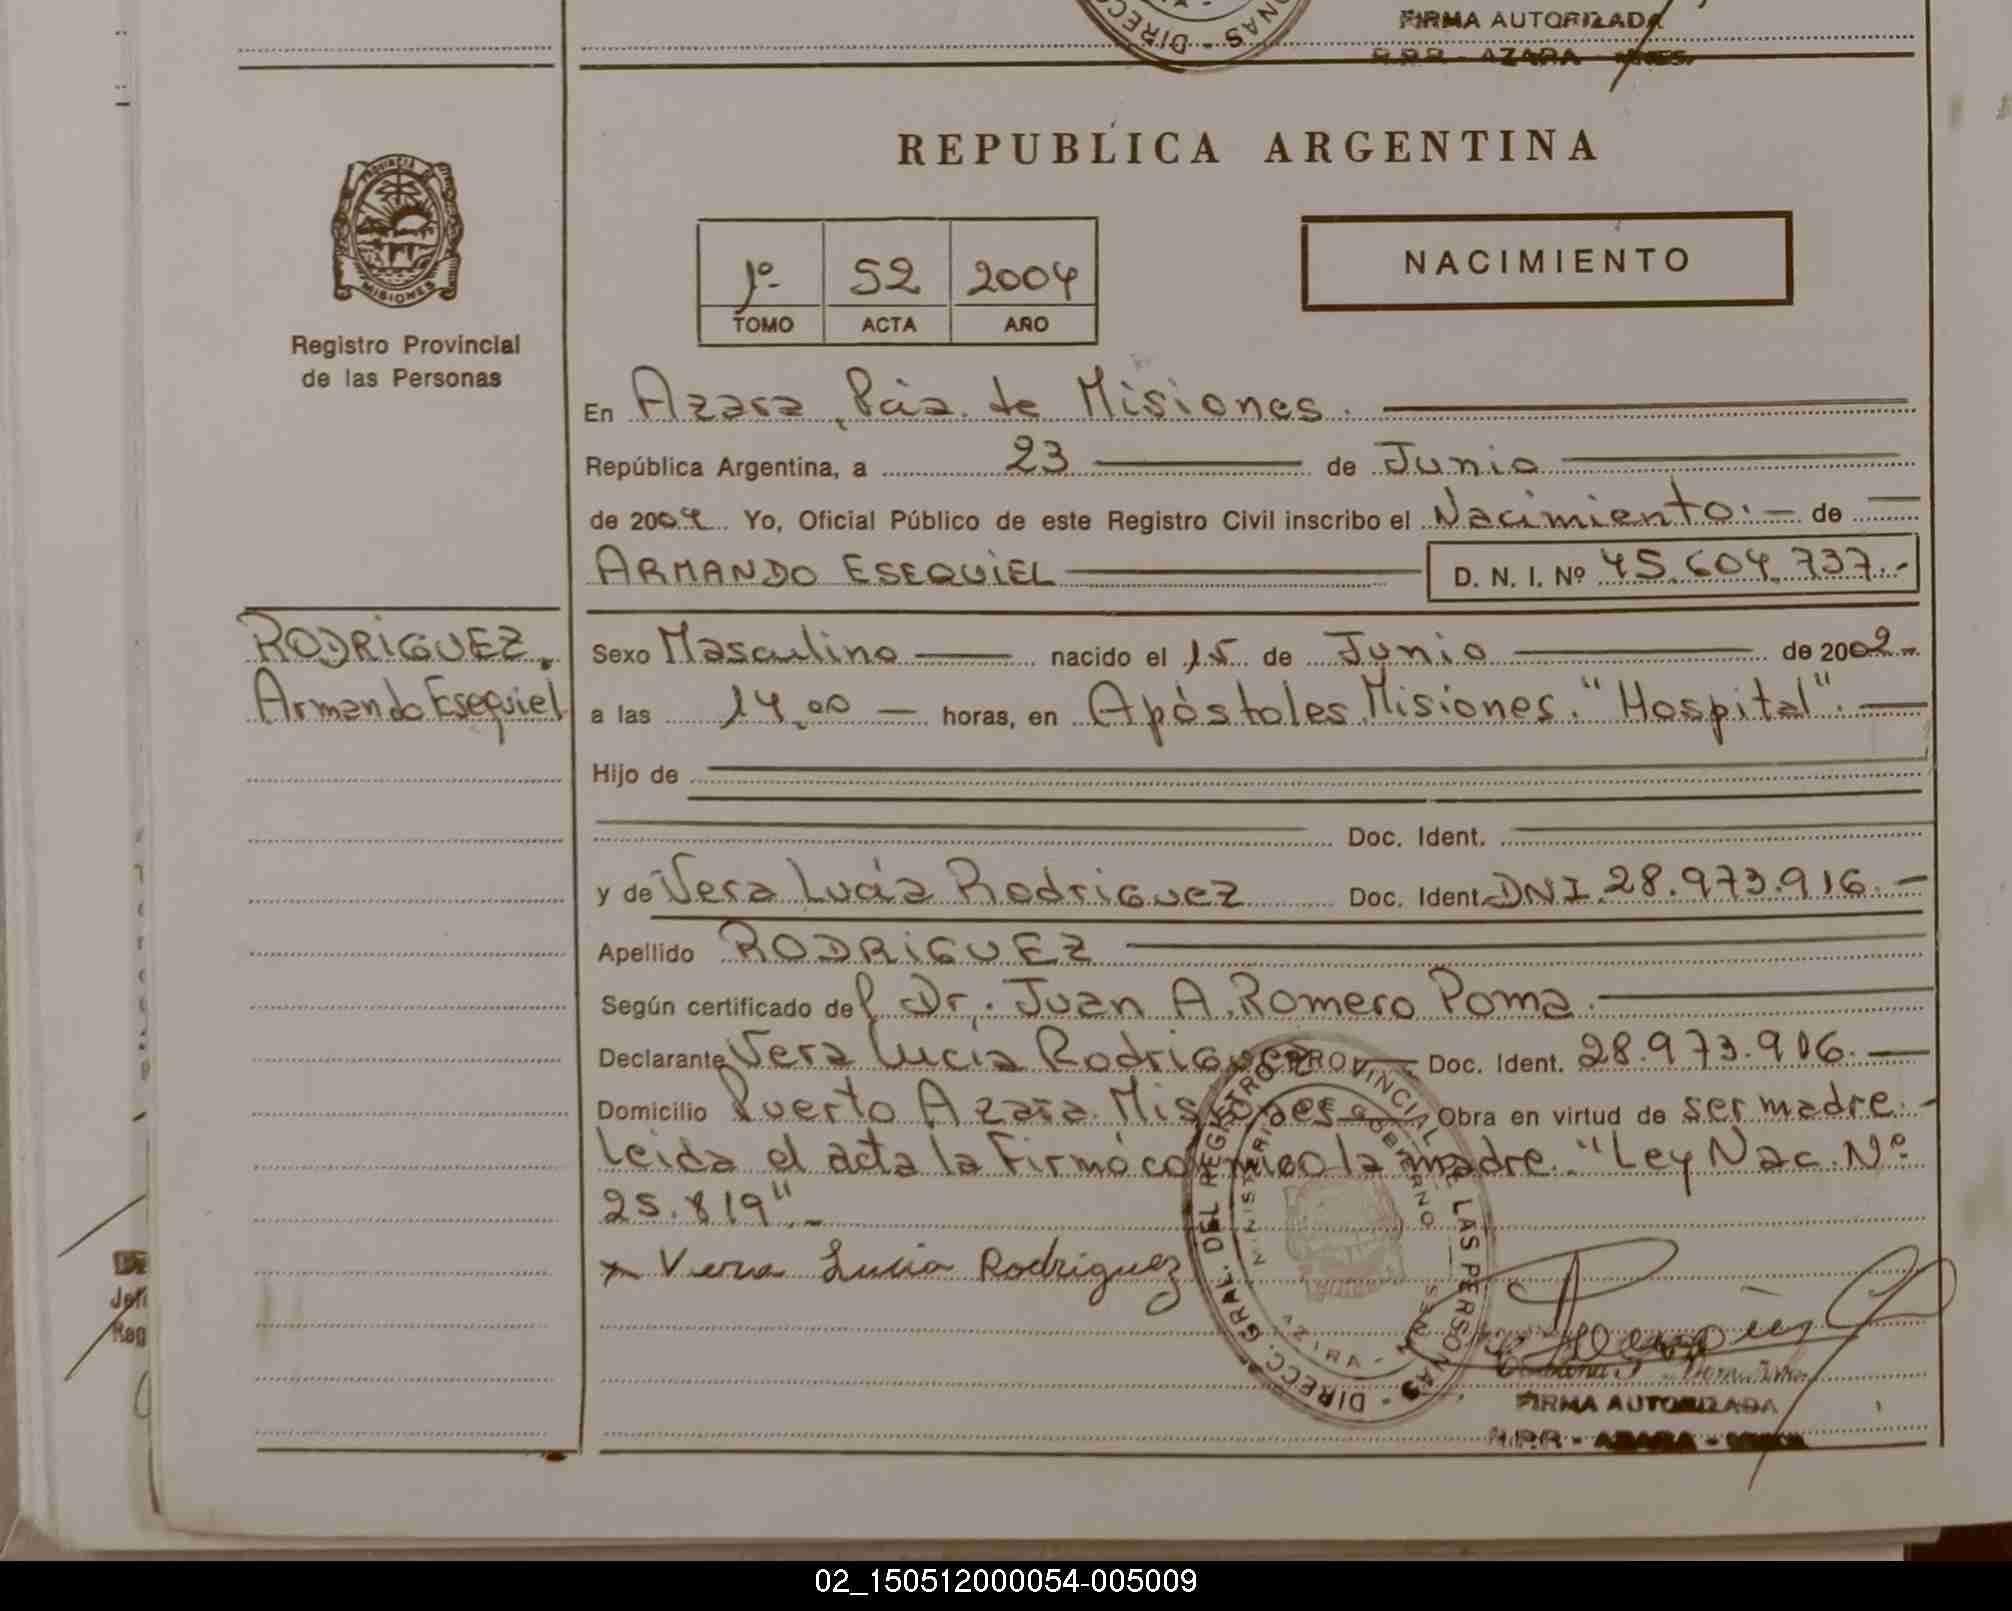 DIRECC
NAS - DIREC
FIRMA AUTORIZADA
R.P.R - AZARA - MNES.
REPUBLICA ARGENTINA
PROVINCIA DE
MISIONES
Registro Provincial
de las Personas
1º 52 2004
TOMO ACTA AÑO
NACIMIENTO
En Azara, Pcia. de Misiones.
República Argentina, a 23 de Junio
de 2004 Yo, Oficial Público de este Registro Civil inscribo el Nacimiento.- de
ARMANDO ESEQUIEL D. N. I. Nº 45.604.737.-
RODRIGUEZ,
Armando Esequiel
Sexo Masculino nacido el 15 de Junio de 2002
a las 14,00 horas, en Apóstoles, Misiones. "Hospital".
Hijo de
Doc. Ident.
y de Vera Lucía Rodriguez Doc. Ident. DNI. 28.973.916.-
Apellido RODRIGUEZ
Según certificado del Dr. Juan A. Romero Poma.
Declarante Vera Lucia Rodriguez Doc. Ident. 28.973.916.
Domicilio Puerto Azara Misiones Obra en virtud de ser madre.-
Leida el acta la Firmó conmigo la madre. "Ley Nac. Nº
25.819".-
x Vera Lucia Rodriguez
DIRECC. GRAL. DEL REGISTRO PROVINCIAL DE LAS PERSONAS
MINISTERIO GOBIERNO
FIRMA AUTORIZADA
R.P.R - AZARA - MNES.
02_150512000054-005009